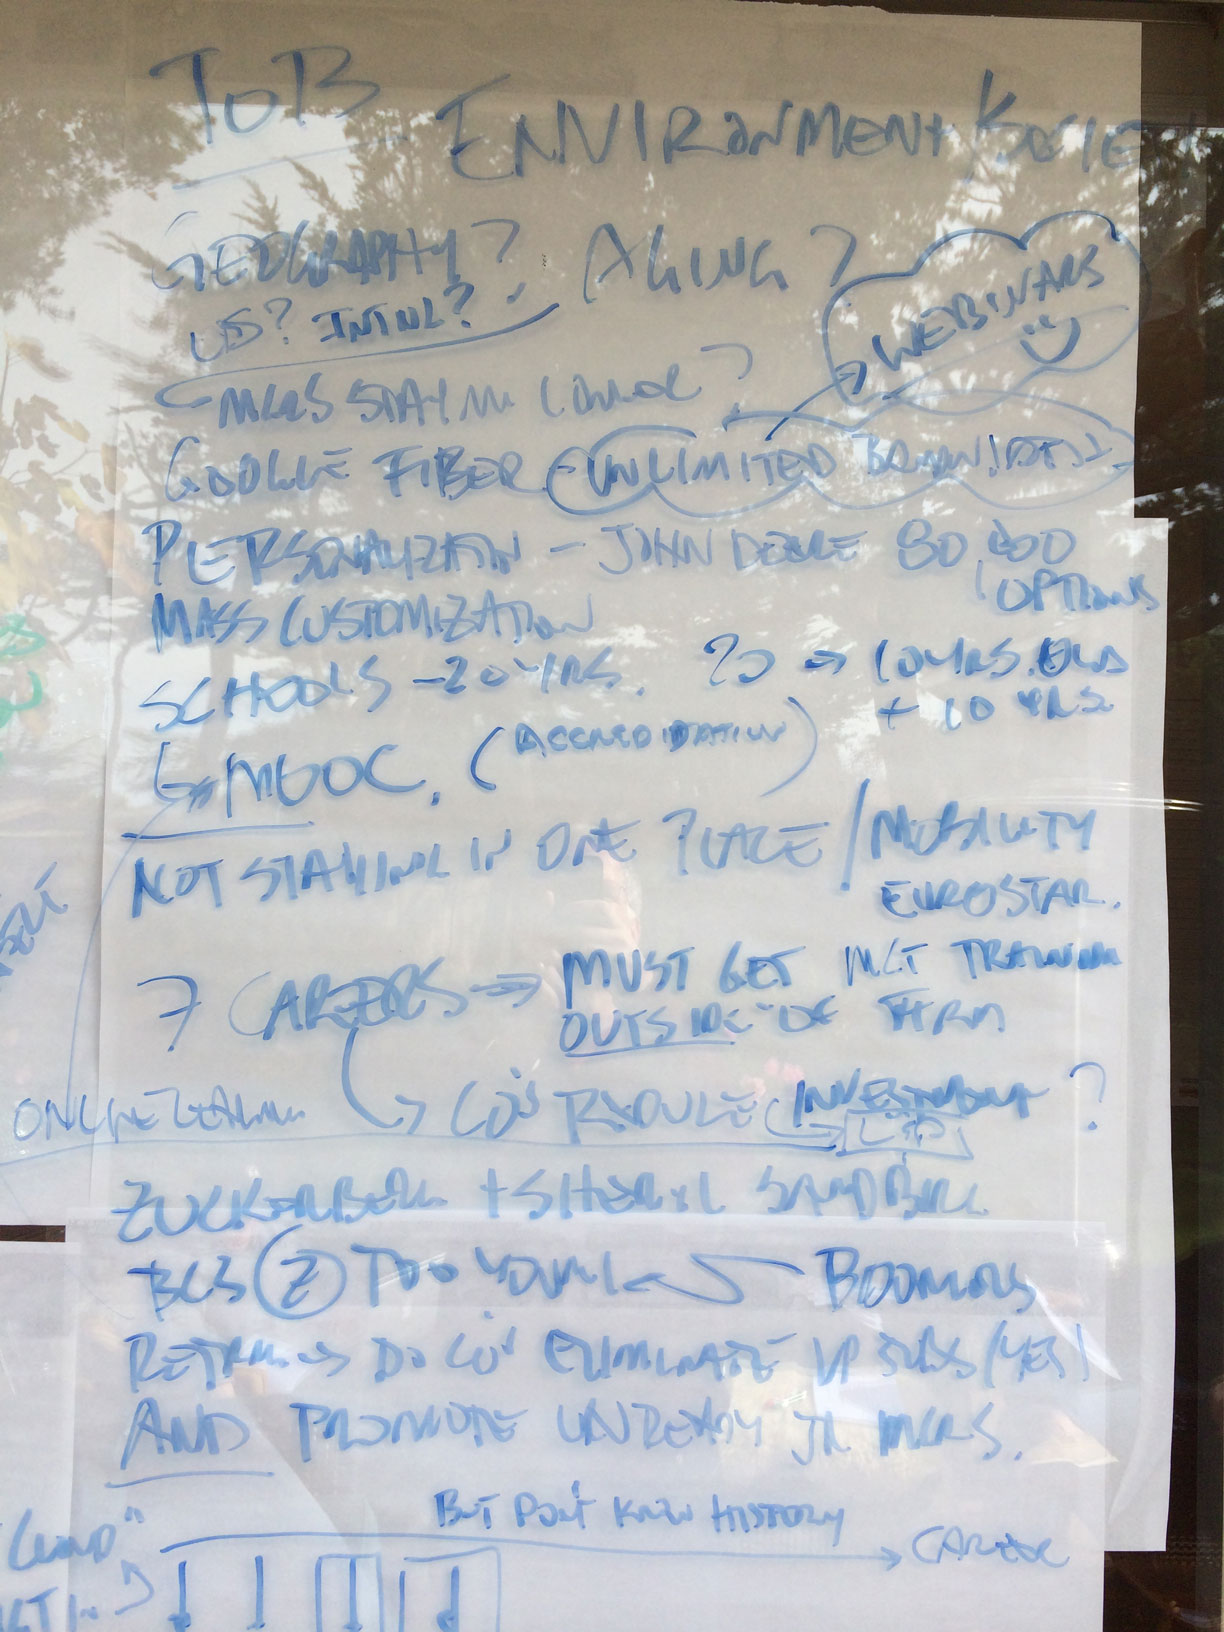 TOB ENVIRONMENT / SOCIE
GEOGRAPHY? AGING?
US? INTNL?
WEBINARS
MGRS STAYING LONGER?
GOOGLE FIBER - UNLIMITED
PERSONALIZATION - JOHN DEERE 80,000
OPTIONS
MASS CUSTOMIZATION
SCHOOLS - 20 YRS. 20 → 10 YRS. OLD
+ 10 YRS
↳ MOOC. (ACCREDITATION)
NOT STAYING IN ONE PLACE / MOBILITY
EUROSTAR.
7 CAREERS → MUST GET MGT TRAINING
OUTSIDE OF FIRM
CO'S REDUCE INVESTMENT?
L+D
ONLINE LEARNING
ZUCKERBERG + SHERYL SANDBERG
BCS Z TOO YOUNG ← BOOMERS
RETIRING → DO CO'S ELIMINATE VP JOBS (YES)
AND PROMOTE UNREADY JR MGRS.
BUT DON'T KNOW HISTORY
CAREER